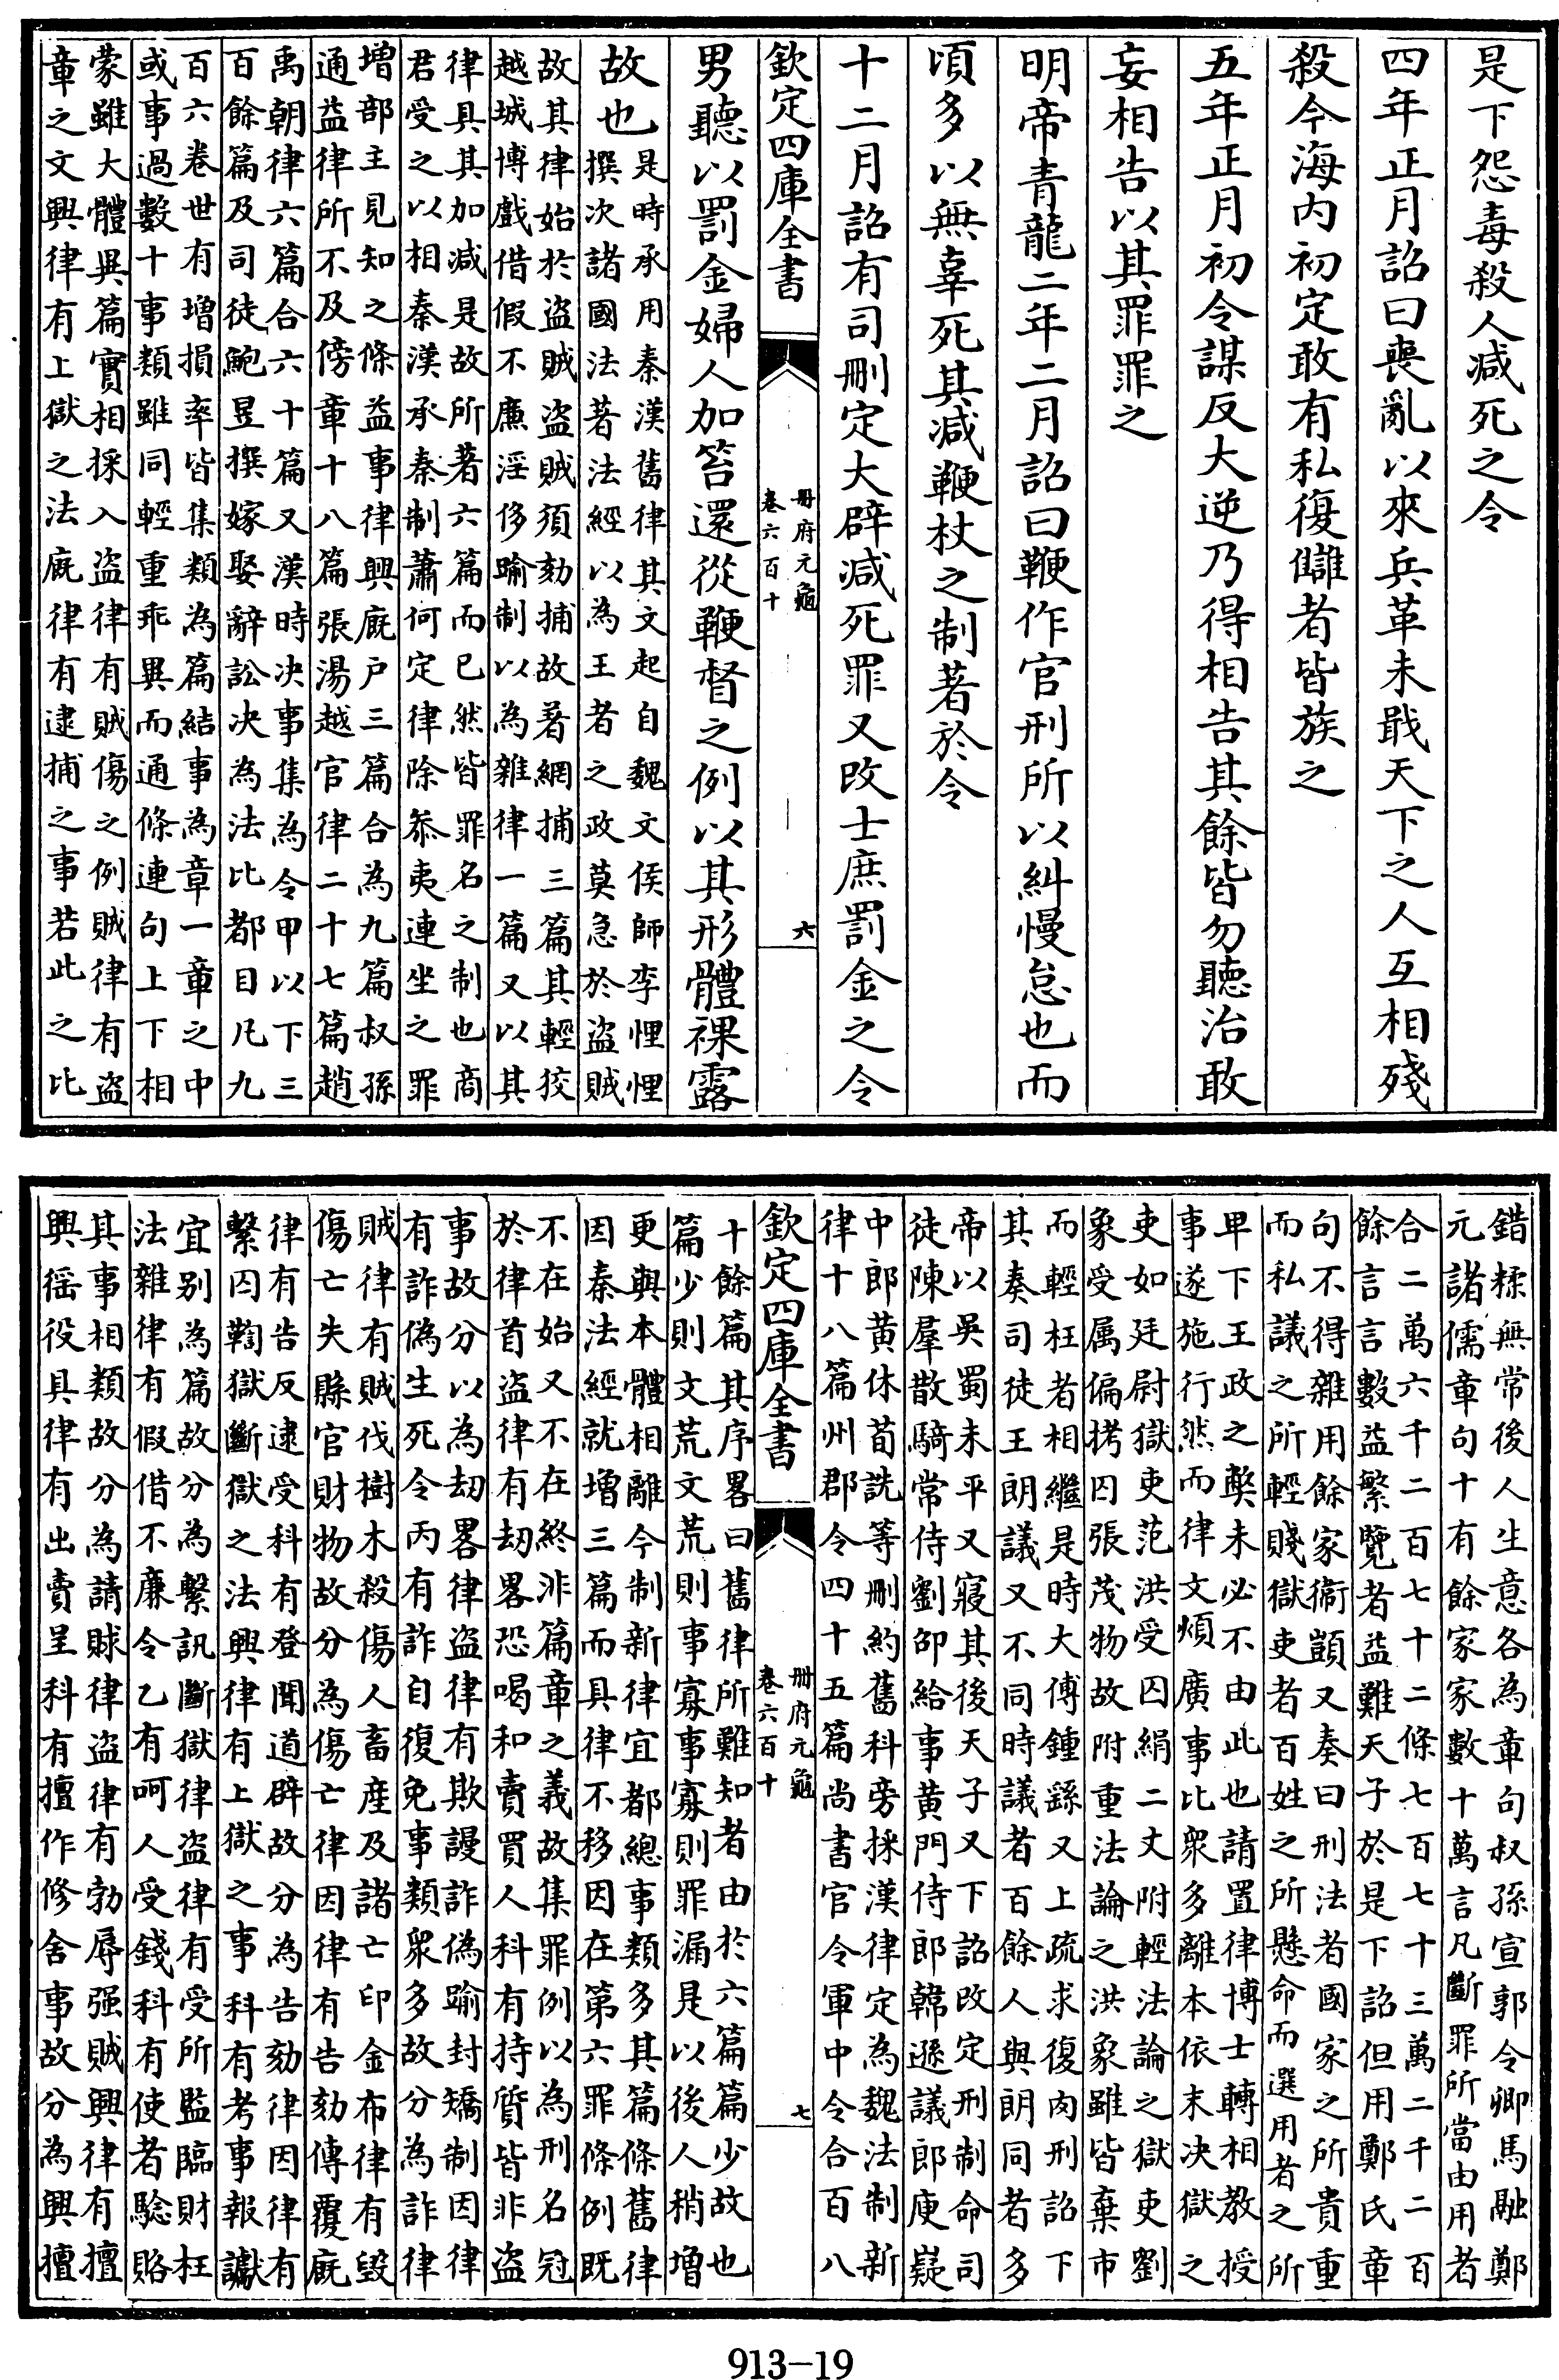 是下怨毒殺人減死之令
四年正月詔曰喪亂以來兵革未戢天下之人互相殘
殺今海内初定敢有私復讎者皆族之
五年正月初令謀反大逆乃得相告其餘皆勿聽治敢
妄相告以其罪罪之
明帝青龍二年二月詔曰鞭作官刑所以糾慢怠也而
頃多以無辜死其減鞭杖之制著於令
十二月詔有司刪定大辟減死罪又改士庶罰金之令
欽定四庫全書
冊府元龜
卷六百十
六
男聽以罰金婦人加笞還從鞭督之例以其形體裸露
故也
是時承用秦漢舊律其文起自魏文侯師李悝悝
撰次諸國法著法經以為王者之政莫急於盜賊
故其律始於盜賊盜賊須劾捕故著網捕三篇其輕狡
越城博戲借假不廉淫侈踰制以為雜律一篇又以其
律具其加減是故所著六篇而已然皆罪名之制也商
君受之以相秦漢承秦制蕭何定律除叅夷連坐之罪
增部主見知之條益事律興廐户三篇合為九篇叔孫
通益律所不及傍章十八篇張湯越官律二十七篇趙
禹朝律六篇合六十篇又漢時决事集為令甲以下三
百餘篇及司徒鮑昱撰嫁娶辭訟决為法比都目凡九
百六卷世有增損率皆集類為篇結事為章一章之中
或事過數十事類雖同輕重乖異而通條連句上下相
蒙雖大體異篇實相採入盜律有賊傷之例賊律有盜
章之文興律有上獄之法廐律有逮捕之事若此之比
錯糅無常後人生意各為章句叔孫宣郭令卿馬融鄭
元諸儒章句十有餘家家數十萬言凡斷罪所當由用者
合二萬六千二百七十二條七百七十三萬二千二百
餘言言數益繁覽者益難天子於是下詔但用鄭氏章
句不得雜用餘家衞顗又奏曰刑法者國家之所貴重
而私議之所輕賤獄吏者百姓之所懸命而選用者之所
卑下王政之弊未必不由此也請置律博士轉相教授
事遂施行然而律文煩廣事比衆多離本依末决獄之
吏如廷尉獄吏范洪受囚絹二丈附輕法論之獄吏劉
象受属偏拷囚張茂物故附重法論之洪象雖皆棄市
而輕枉者相繼是時大傅鍾繇又上疏求復肉刑詔下
其奏司徒王朗議又不同時議者百餘人與朗同者多
帝以吳蜀未平又寢其後天子又下詔改定刑制命司
徒陳羣散騎常侍劉邵給事黄門侍郎韓遜議郎庾嶷
中郎黄休荀詵等刪約舊科旁採漢律定為魏法制新
律十八篇州郡令四十五篇尚書官令軍中令合百八
欽定四庫全書
冊府元龜
卷六百十
七
十餘篇其序畧曰舊律所難知者由於六篇篇少故也
篇少則文荒文荒則事寡事寡則罪漏是以後人稍增
更與本體相離今制新律宜都總事類多其篇條舊律
因秦法經就增三篇而具律不移因在第六罪條例既
不在始又不在終非篇章之義故集罪例以為刑名冠
於律首盜律有刼畧恐喝和賣買人科有持質皆非盜
事故分以為刼畧律盜律有欺謾詐偽踰封矯制因律
有詐偽生死令丙有詐自復免事類衆多故分為詐律
賊律有賊伐樹木殺傷人畜產及諸亡印金布律有毁
傷亡失縣官財物故分為傷亡律因律有告劾傳覆廐
律有告反逮受科有登聞道辟故分為告劾律因律有
繫囚鞫獄斷獄之法興律有上獄之事科有考事報讞
宜别為篇故分為繫訊斷獄律盜律有受所監臨財枉
法雜律有假借不廉令乙有呵人受錢科有使者驗賂
其事相類故分為請賕律盜律有勃辱强賊興律有擅
興徭役具律有出賣呈科有擅作修舍事故分為興擅
913-19